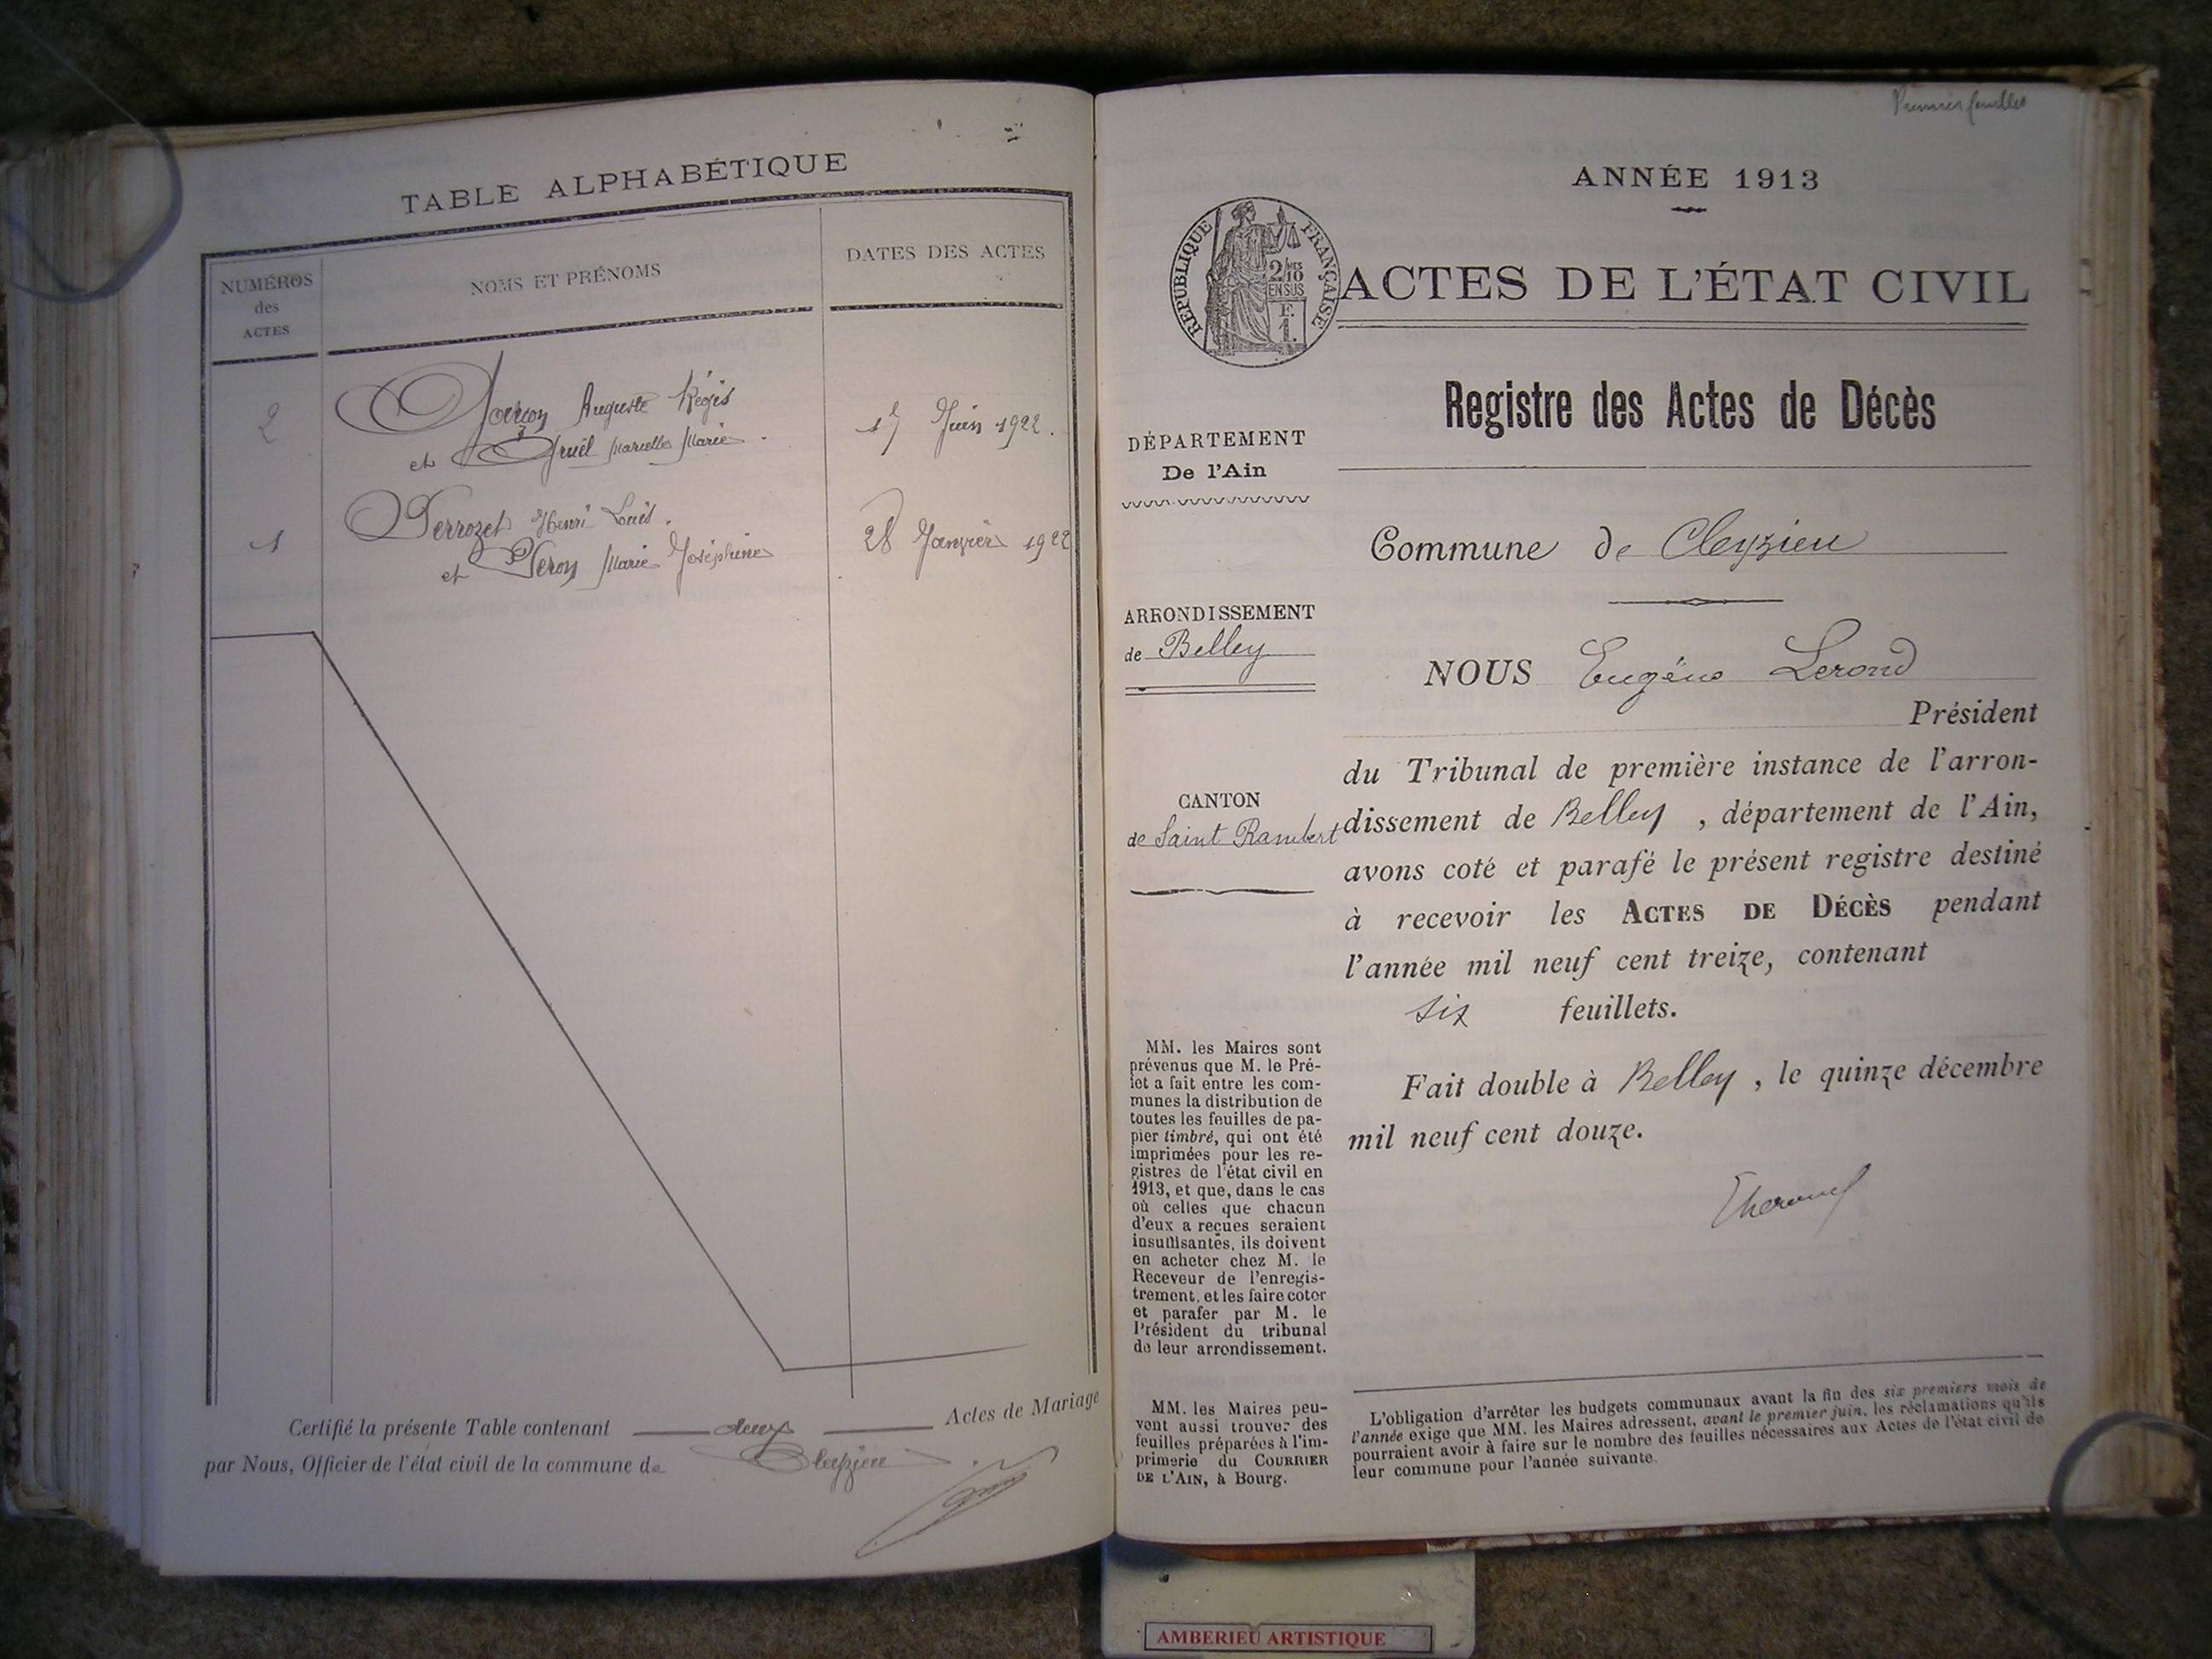 TABLE ALPHABÉTIQUE
NUMÉROS
des
ACTES
NOMS ET PRÉNOMS
DATES DES ACTES
2
Auguste Régis
et Gruel Marcelle Marie.
17 Juin 1922.
1
Perrozet Henri Louis.
et Peron Marie Joséphine
28 Janvier 1922
Certifié la présente Table contenant deux Actes de Mariage
par Nous, Officier de l'état civil de la commune de Cleyzieu
Premier feuillet
ANNÉE 1913
RÉPUBLIQUE FRANÇAISE
2/10 MES
EN SUS
F.
1.
ACTES DE L'ÉTAT CIVIL
Registre des Actes de Décès
DÉPARTEMENT
De l'Ain
Commune de Cleyzieu
ARRONDISSEMENT
de Belley
NOUS Eugène Lerond
Président
du Tribunal de première instance de l'arron-
CANTON
de Saint Rambert
dissement de Belley , département de l'Ain,
avons coté et parafé le présent registre destiné
à recevoir les ACTES DE DÉCÈS pendant
l'année mil neuf cent treize, contenant
six feuillets.
Fait double à Belley , le quinze décembre
mil neuf cent douze.
MM. les Maires sont
prévenus que M. le Pré-
fet a fait entre les com-
munes la distribution de
toutes les feuilles de pa-
pier timbré, qui ont été
imprimées pour les re-
gistres de l'état civil en
1913, et que, dans le cas
où celles que chacun
d'eux a reçues seraient
insuffisantes, ils doivent
en acheter chez M. le
Receveur de l'enregis-
trement, et les faire coter
et parafer par M. le
Président du tribunal
de leur arrondissement.
MM. les Maires peu-
vent aussi trouver des
feuilles préparées à l'im-
primerie du COURRIER
DE L'AIN, à Bourg.
L'obligation d'arrêter les budgets communaux avant la fin des six premiers mois de
l'année exige que MM. les Maires adressent, avant le premier juin, les réclamations qu'ils
pourraient avoir à faire sur le nombre des feuilles nécessaires aux Actes de l'état civil de
leur commune pour l'année suivante.
AMBERIEU ARTISTIQUE